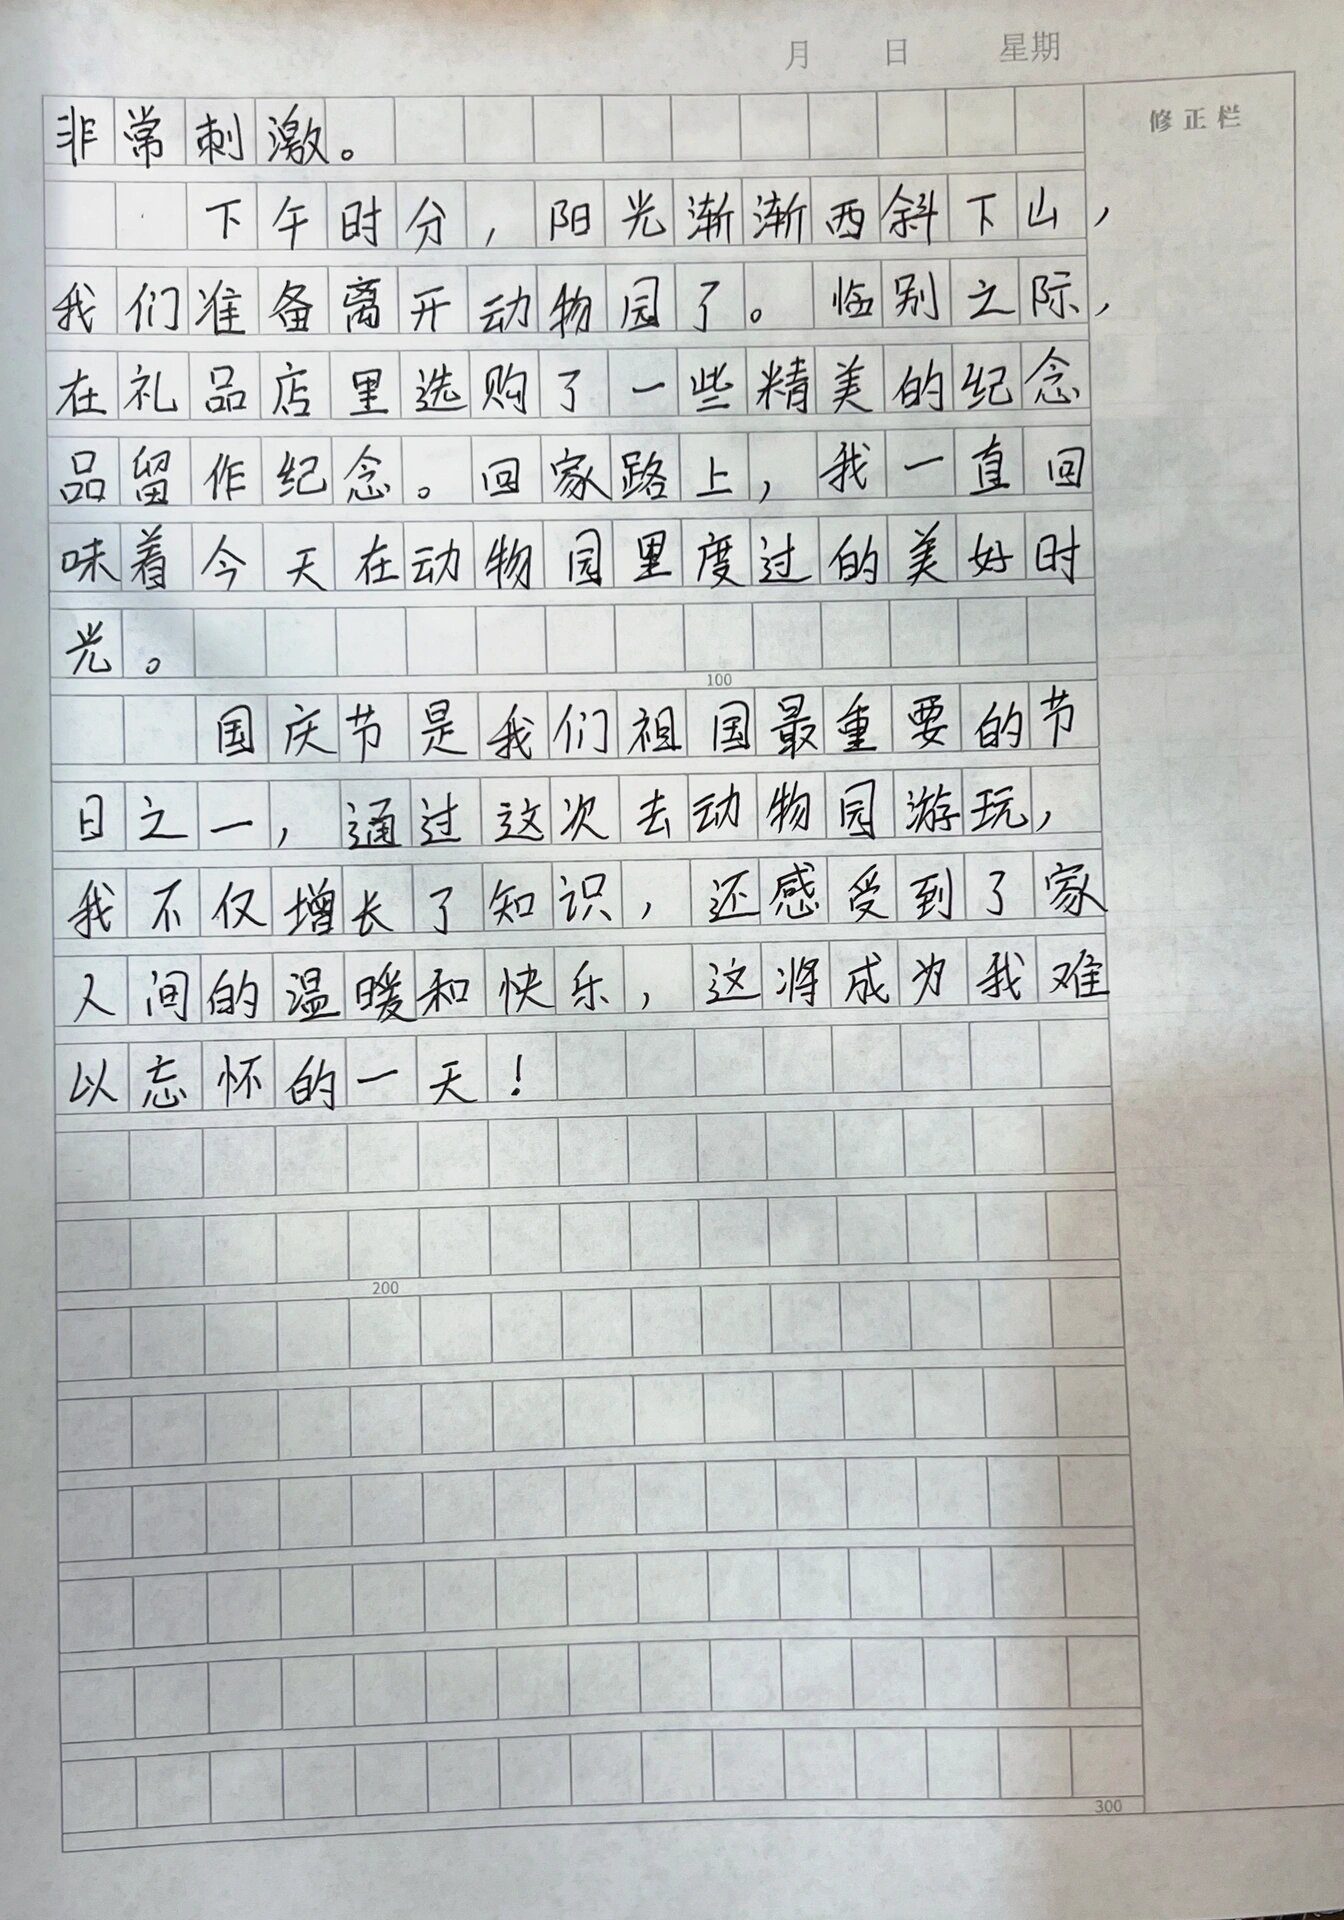 月 日 星期
修正栏
非常刺激。
下午时分，阳光渐渐西斜下山，
我们准备离开动物园了。临别之际，
在礼品店里选购了一些精美的纪念
品留作纪念。回家路上，我一直回
味着今天在动物园里度过的美好时
光。
100
国庆节是我们祖国最重要的节
日之一，通过这次去动物园游玩，
我不仅增长了知识，还感受到了家
人间的温暖和快乐，这将成为我难
以忘怀的一天！
200
300